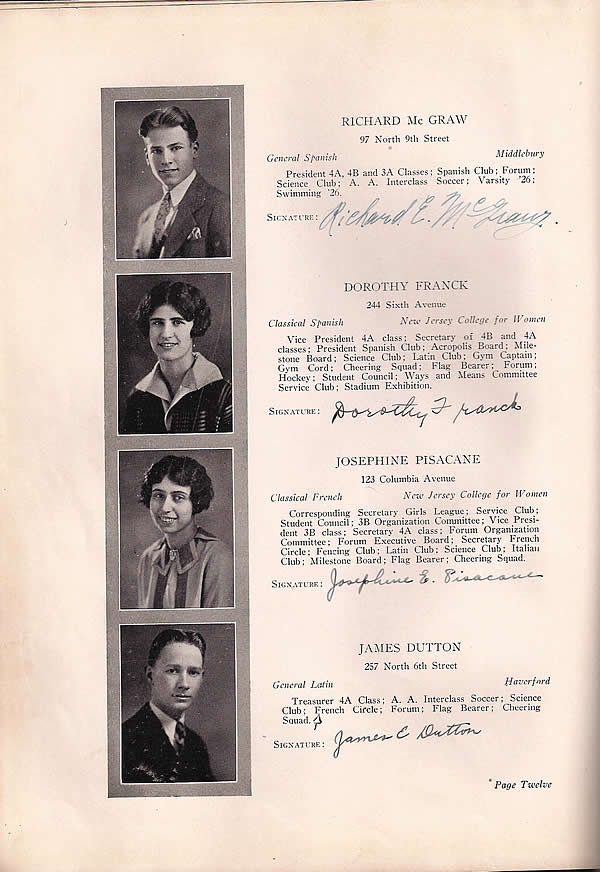 RICHARD Mc GRAW
97 North 9th Street
General Spanish Middlebury
President 4A, 4B and 3A Classes; Spanish Club; Forum;
Science Club; A. A. Interclass Soccer; Varsity '26;
Swimming '26.
SIGNATURE: Richard E. McGraw.
DOROTHY FRANCK
244 Sixth Avenue
Classical Spanish New Jersey College for Women
Vice President 4A class; Secretary of 4B and 4A
classes; President Spanish Club; Acropolis Board; Mile-
stone Board; Science Club; Latin Club; Gym Captain;
Gym Cord; Cheering Squad; Flag Bearer; Forum;
Hockey; Student Council; Ways and Means Committee
Service Club; Stadium Exhibition.
SIGNATURE: Dorothy Franck
JOSEPHINE PISACANE
123 Columbia Avenue
Classical French New Jersey College for Women
Corresponding Secretary Girls League; Service Club;
Student Council; 3B Organization Committee; Vice Presi-
dent 3B class; Secretary 4A class; Forum Organization
Committee; Forum Executive Board; Secretary French
Circle; Fencing Club; Latin Club; Science Club; Italian
Club; Milestone Board; Flag Bearer; Cheering Squad.
SIGNATURE: Josephine E. Pisacane
JAMES DUTTON
257 North 6th Street
General Latin Haverford
Treasurer 4A Class; A. A. Interclass Soccer; Science
Club; French Circle; Forum; Flag Bearer; Cheering
Squad.
SIGNATURE: James C Dutton
Page Twelve